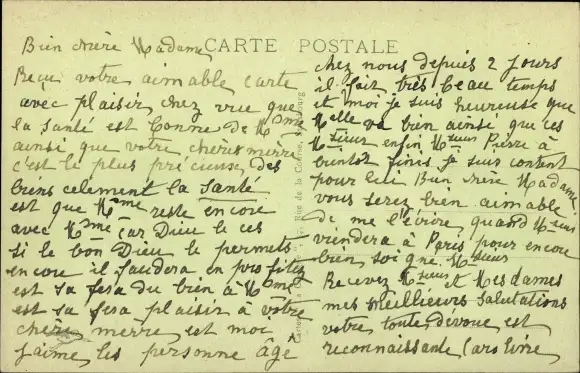 CARTE POSTALE
Bien chère Madame
Reçu votre aimable carte
avec plaisir, chez vue que
la santé est bonne de Mme
ainsi que votre cheris merre
c'est le plus précieux, des
biens celement la santé
est que Mme reste encore
avec Mme car Dieu le ces
si le bon Dieu le permets
encore il faudera en profitez
est sa fera du bien à Mme
est sa fera plaisir à vôtre
chère merre, est moi
j'aime, les personne âgé
chez nous depuis 2 jours
il fait très beau temps
et moi je suis heureuse que
Melle va bien ainsi que ces
Msieur enfin Msieur Pierre à
bientôt finis je suis content
pour lui Bien chère Madame
vous serez bien aimable
de me l'écrire, quand Msieur
viendera à Paris pour encore
bien, soi que Msieur
Recevez Msieur et Mesdames
mes meillieurs salutations
votre, toute, dévoue, est
reconnaissante Caroline